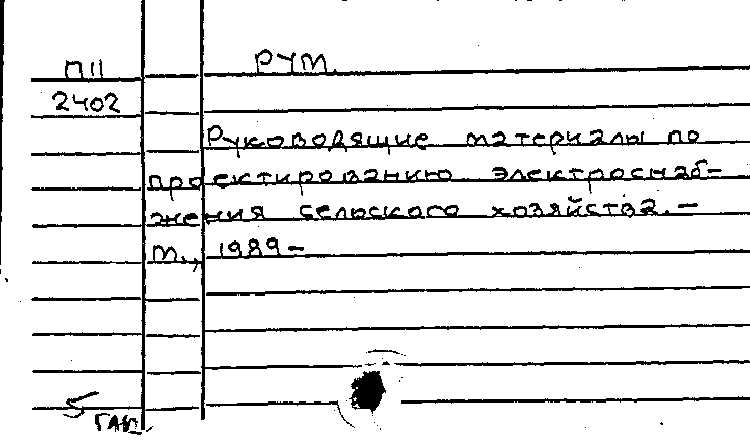 П11 РУМ.
2402
Руководящие материалы по
проектированию электроснаб-
жения сельского хозяйства. –
М., 1989 –
5